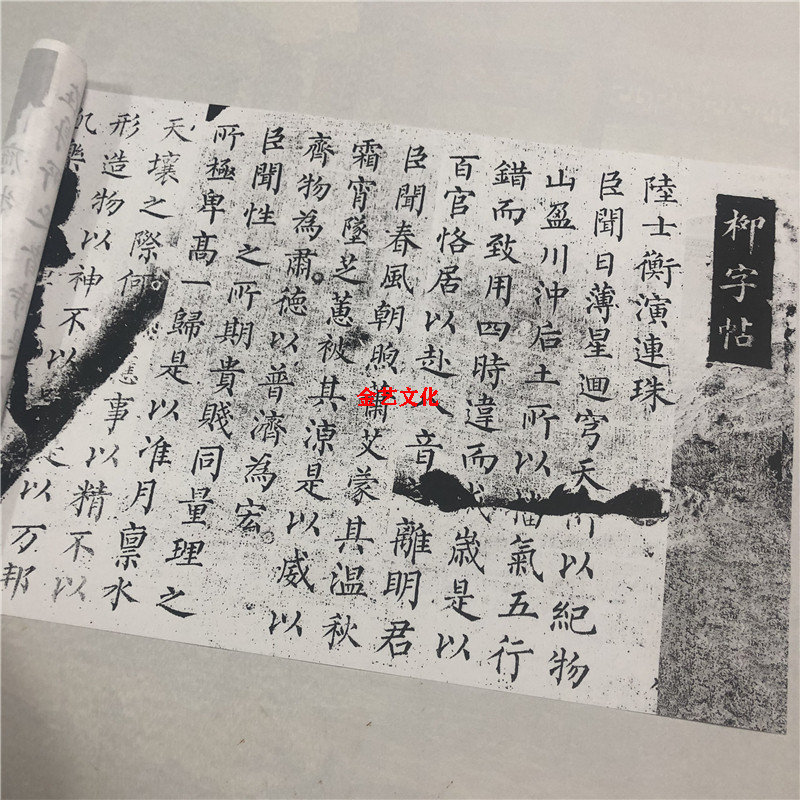 柳字帖
陸士衡演連珠
臣聞日薄星迴穹天所以紀物
山盈川沖后土所以播氣五行
錯而致用四時違而成嵗是以
百官恪居以赴八音離明君
臣聞春風朝煦蕭艾蒙其温秋
霜宵墜芝蕙被其凉是以威以
齊物為肅。德以普濟為宏。
臣聞性之所期貴賤同量理之
所極卑高一歸是以准月禀水
天壤之際何。事以精不以
形造物以神不以之以万邦
樂
金艺文化